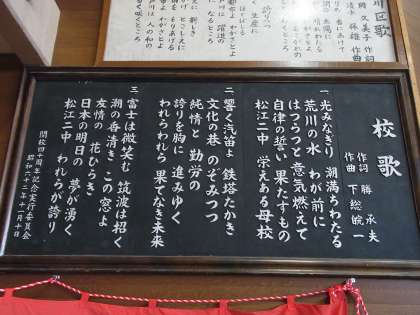 川区歌
久美子 作詞
保雄 作曲
校歌
作詞 勝 承夫
作曲 下総皖一
一 光みなぎり 潮満ちわたる
荒川の水 わが前に
はつらつと 意気燃えて
自律の誓い 果たすもの
松江二中 学えある母校
二 響く汽笛よ 鉄塔たかき
文化の巷 のぞみつつ
純情と 勤労の
誇りを胸に 進みゆく
われらわれら 果てなき未来
三 富士は微笑む 筑波は招く
潮の香清き この窓よ
友情の 花ひらき
日本の明日の 夢が湧く
松江二中 われらが誇り
開校四十周年記念実行委員会
昭和六十二年十一月十日